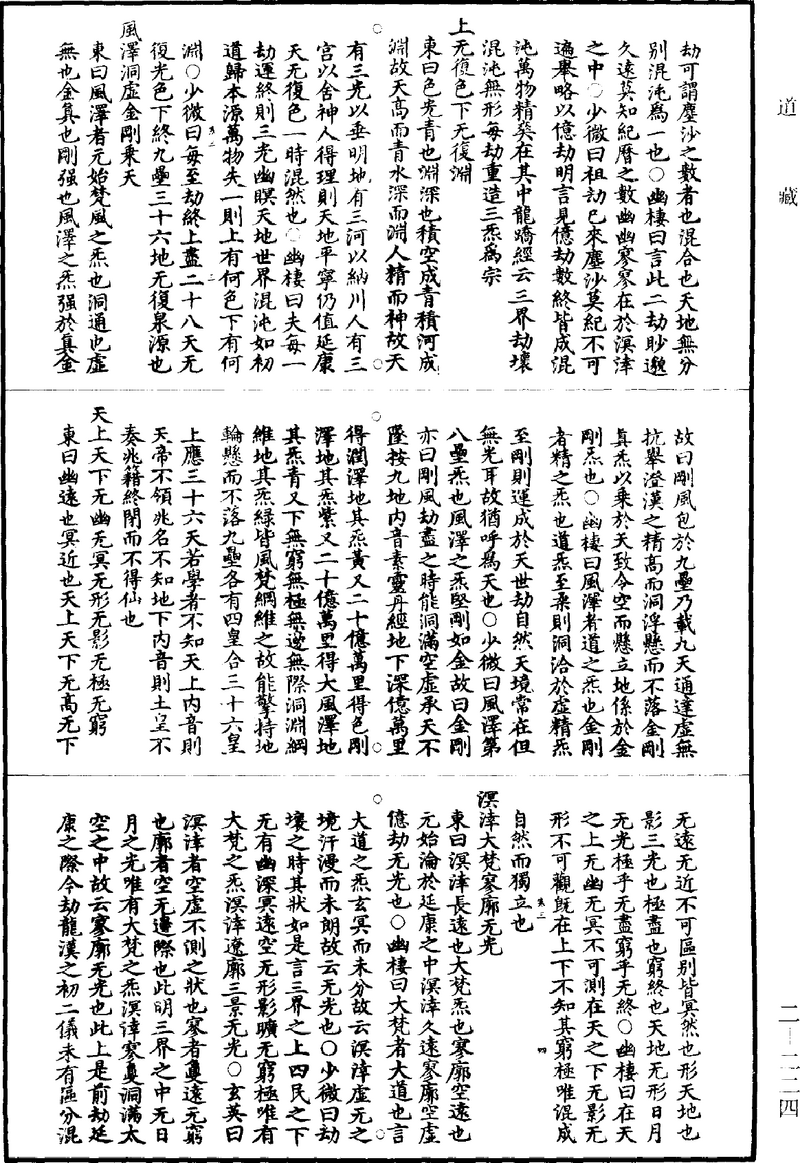 道藏
二—二二四
劫可謂塵沙之數者也混合也天地無分
別混沌爲一也○幽棲曰言此二劫眇邈
久遠莫知紀曆之數幽幽寥寥在於溟涬
之中○少微曰祖劫已來塵沙莫紀不可
遍舉略以億劫明言見億劫數終皆成混
沌萬物精炁在其中龍蹻經云三界劫壞
混沌無形每劫重造三炁爲宗
上无復色下无復淵
東曰色光青也淵深也積空成青積河成
淵故天高而青水深而淵人精而神故天
有三光以垂明地有三河以納川人有三
宫以舍神人得理則天地平寧仍值延康
天无復色一時混然也○幽棲曰夫每一
劫運終則三光幽瞑天地世界混沌如初
道歸本源萬物失一則上有何色下有何
淵○少微曰每至劫終上盡二十八天无
復光色下終九壘三十六地无復泉源也
風澤洞虚金剛乘天
東曰風澤者元始梵風之炁也洞通也虚
無也金真也剛强也風澤之炁强於真金
故曰剛風包於九壘乃載九天通達虚無
抗舉澄漢之精高而洞浮懸而不落金剛
真炁以乘於天致令空而懸立地係於金
剛炁也○幽棲曰風澤者道之炁也金剛
者精之炁也道炁至柔則洞洽於虚精炁
至剛則運成於天世劫自然天境常在但
無光耳故猶呼爲天也○少微曰風澤第
八壘炁也風澤之炁堅剛如金故曰金剛
亦曰剛風劫盡之時能洞滿空虚承天不
墜按九地内音素靈丹經地下深億萬里
得潤澤地其炁黄又二十億萬里得色剛
澤地其炁紫又二十億萬里得大風澤地
其炁青又下無窮無極無邊無際洞淵綱
維地其炁緑皆風梵綱維之故能擎持地
輪懸而不落九壘各有四皇合三十六皇
上應三十六天若學者不知天上内音則
天帝不領兆名不知地下内音則土皇不
奏兆籍終閉而不得仙也
天上天下无幽无冥无形无影无極无窮
東曰幽遠也冥近也天上天下无高无下
无遠无近不可區别皆冥然也形天地也
影三光也極盡也窮終也天地无形日月
无光極乎无盡窮乎无終○幽棲曰在天
之上无幽无冥不可測在天之下无影无
形不可觀既在上下不知其窮極唯混成
自然而獨立也
溟涬大梵寥廓无光
東曰溟涬長遠也大梵炁也寥廓空遠也
元始淪於延康之中溟涬久遠寥廓空虚
億劫无光也○幽棲曰大梵者大道也言
大道之炁玄冥而未分故云溟涬虚无之
境汗漫而未朗故云无光也○少微曰劫
壞之時其狀如是言三界之上四民之下
无有幽深冥遠空无形影曠无窮極唯有
大梵之炁溟涬遼廓三景无光○玄英曰
溟涬者空虚不測之狀也寥者敻遠无窮
也廓者空无邊際也此明三界之中无日
月之光唯有大梵之炁溟涬寥敻洞滿太
空之中故云寥廓无光也此上是前劫延
康之際今劫龍漢之初二儀未有區分混